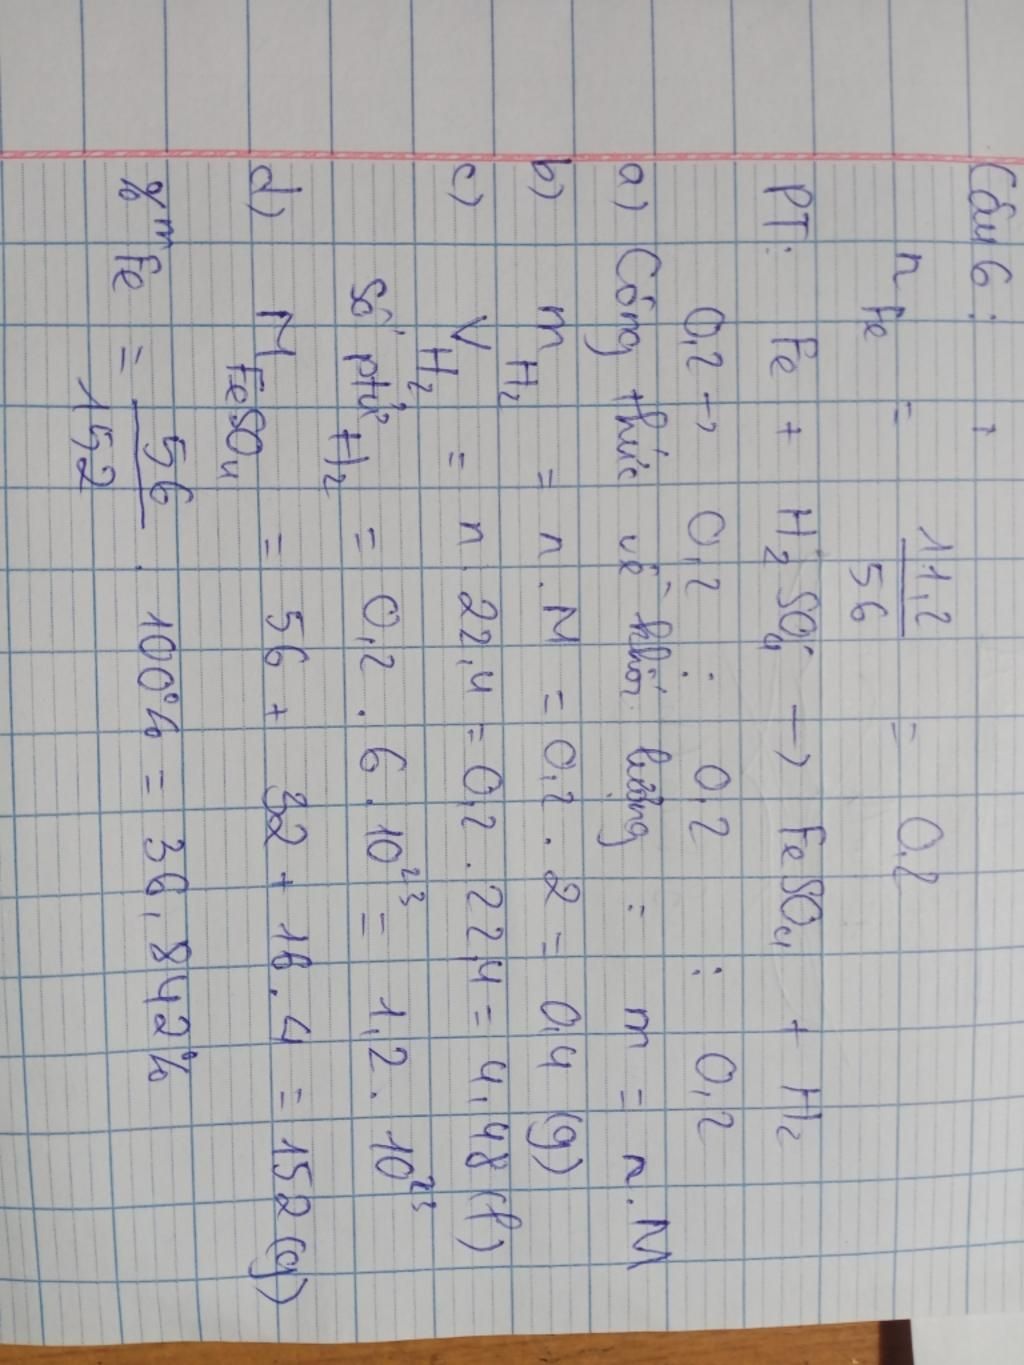 Câu 6 :
nFe = 11,2/56 = 0,2
PT: Fe + H2SO4 → FeSO4 + H2
0,2 → 0,2 : 0,2 : 0,2
a) Công thức về khối lượng : m = n.M
b) mH2 = n.M = 0,2 . 2 = 0,4 (g)
c) VH2 = n.22,4 = 0,2 . 22,4 = 4,48 (l)
số ptử H2 = 0,2 . 6.10²³ = 1,2.10²³
d) MFeSO4 = 56 + 32 + 16.4 = 152 (g)
%mFe = 56/152 . 100% = 36,842%